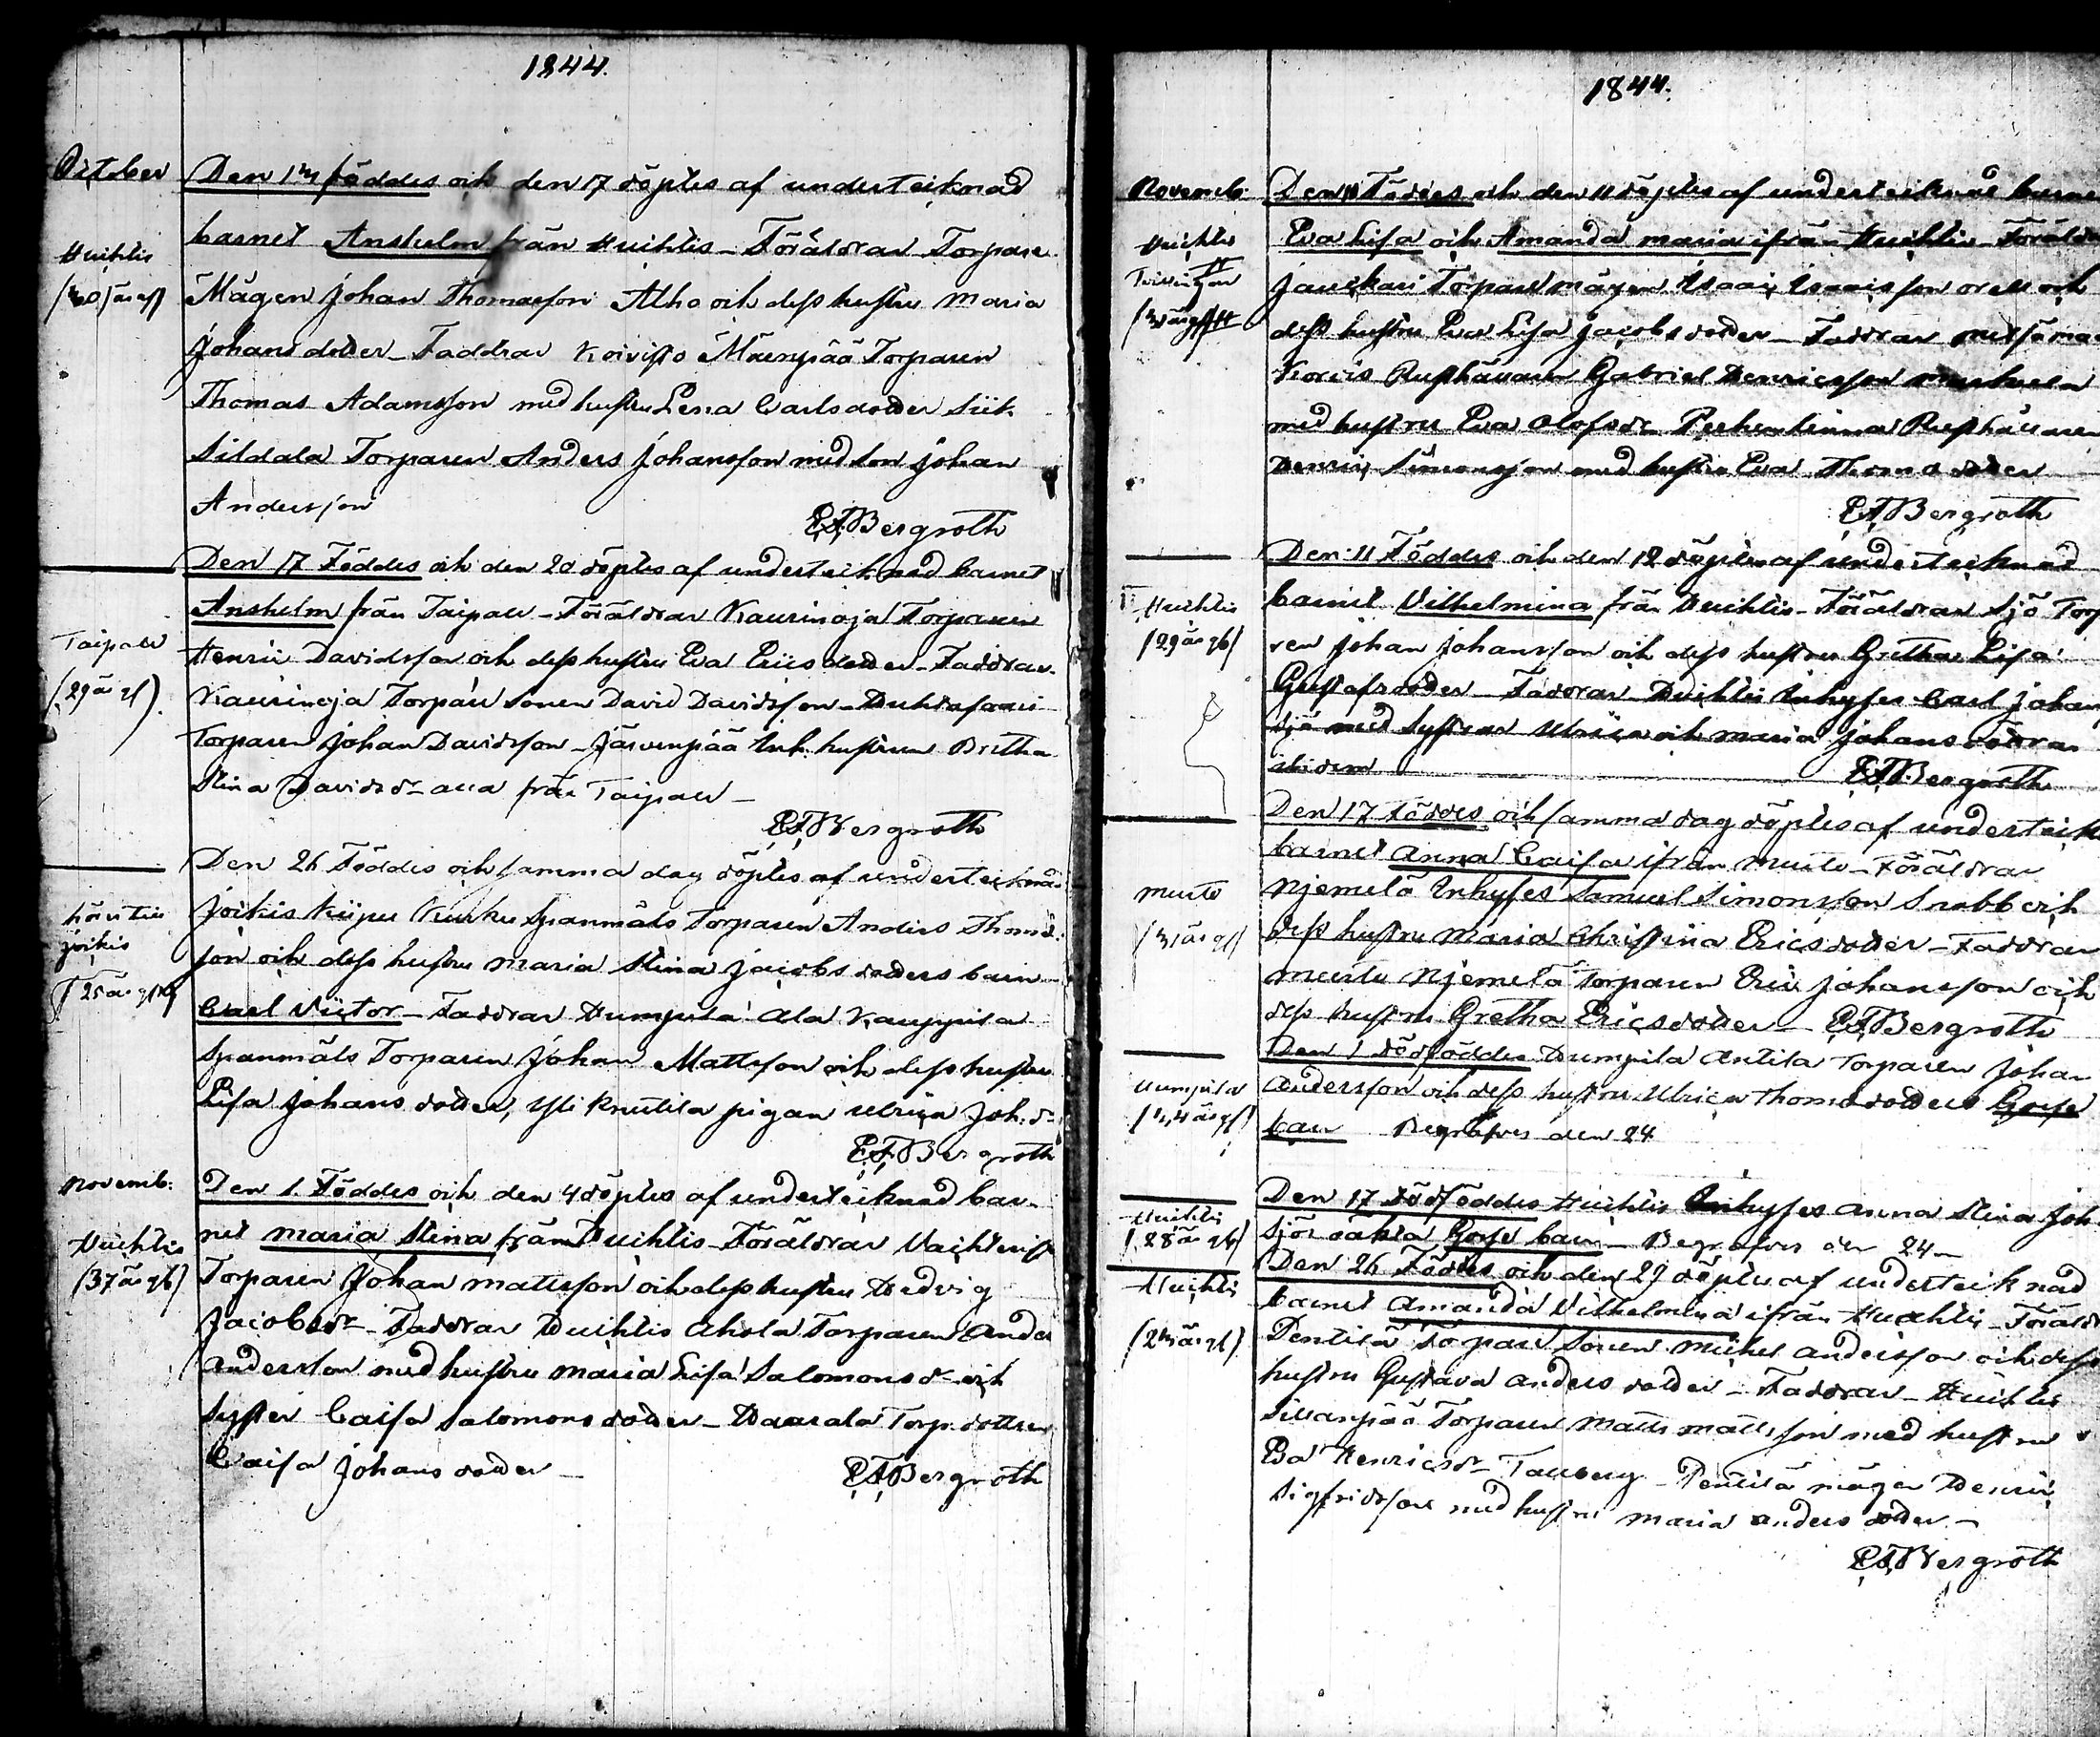 1844.
October
Den 14 föddes och den 17 döptes af undertecknad
Huihtis
barnet Anshelm från Huihtis – Föräldrar Torpare
Mågen Johan Thomasson Alho och dess hustru Maria
Johans dotter – Faddrar Koivisto Mäenpää Torparen
Thomas Adamsson med hustru Lena Carlsdotter
Sildala Torparen Anders Johansson med son Johan
Andersson
EFBergroth
Den 17 Föddes och den 20 döptes af undertecknad barnet
Taipale
(29 år gl)
Anshelm från Taipale – Föräldrar Kaurinoja Torparen
Henric Davidsson och dess hustru Eva Ericsdotter – Faddrar
Kaurinoja Torpare sonen David Davidsson –
Torparen Johan Davidsson – Järvenpää Inh. hustrun Bretha
Stina Davidsdr alla från Taipale –
EFBergroth
Den 26 Föddes och samma dag döptes af undertecknad
Jockis
(25 år gl)
Jockis Spanmåls Torparen Anders Thomas
son och dess hustru Maria Stina Jacobs dotters barn
Carl Victor – Faddrar Humpila Ala Kauppila
Spanmåls Torparen Johan Mattsson och dess hustru
Lisa Johans dotter, pigan Ulrica Joh. dr
EFBergroth
Novemb:
Den 1. Föddes och den 4 döptes af undertecknad bar-
Huihtis
(37 år gl)
net Maria Stina från Huihtis – Föräldrar
Torparen Johan Mattsson och dess hustru Hedvig
Jacobsdr – Faddrar Huihtis Ahola Torparen Anders
Andersson med hustru Maria Lisa Salomonsdr och
Syster Caisa Salomons dotter – Torp. dottren
Caisa Johans dotter –
EFBergroth
1844.
Novemb:
Föddes och den 11 döptes af undertecknad barnen
Huihtis
Tvillingar
Eva Lisa och Amanda Maria ifrån Huihtis – Föräldrar
Torpare mågen Isaac Isaacsson och
dess hustru Eva Lisa Jacobs dotter – Faddrar
Rusthållaren Gabriel Henricsson
med hustru Eva Olofsdr Rusthållaren
Henric Simonsson med hustru Eva Thomas dotter
EFBergroth
Den 11 Föddes och den 12 döptes af undertecknad
Huihtis
(29 år gl)
barnet Vilhelmina från Huihtis – Föräldrar Sjö Torp
ren Johan Johansson och dess hustru Gretha Lisa
Gustafs dotter – Faddrar Huihtis Inhyses Carl Johan
Sjö med Systrar Ulrica och Maria Johans döttrar
ibidem
EFBergroth
Den 17 Föddes och samma dag döptes af undertecknad
barnet Anna Caisa ifrån Murto – Föräldrar
Murto
(31 år gl)
Njemelä Inhyses Samuel Simonsson Snabb och
dess hustru Maria Christina Ericsdotter – Faddrar
Murto Njemelä Torparen Eric Johansson och
dess hustru Gretha Ericsdotter – EFBergroth
Den 1 dödföddes Humpila Antila Torparen Johan
Humpila
(44 år gl)
Andersson och dess hustru Ulrica Thomasdotters Gosse
barn Begrafves den 24
Den 17 dödföddes Huihtis Inhyses Anna Stina Joh.
Huihtis
(28 år gl)
Sjö oäkta Gosse barn – Begrafves den 24 –
Den 26 Föddes och den 29 döptes af undertecknad
Huihtis
(24 år gl)
barnet Amanda Vilhelmina ifrån Huihtis – Föräldrar
Pentilä Torpare Sonen Michel Andersson och dess
hustru Gustava Anders dotter – Faddrar – Huihtis
Sillanpää Torparen Matts Mattsson med hustru
Eva Henricsdr Tauberg – Pentilä mågen Henric
Sigfridsson med hustru Maria Anders dotter –
EFBergroth